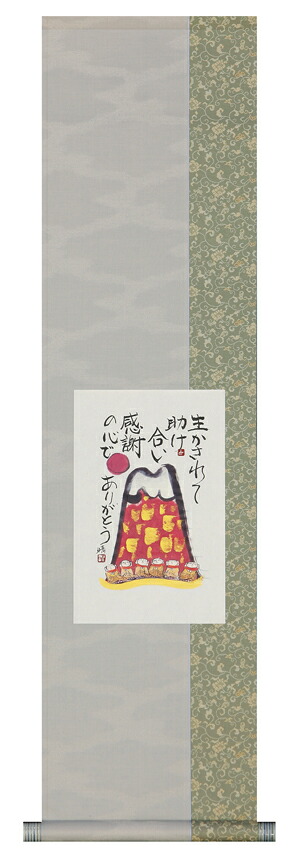 生かされて
助け
合い
感謝
の心で
ありがとう
晴